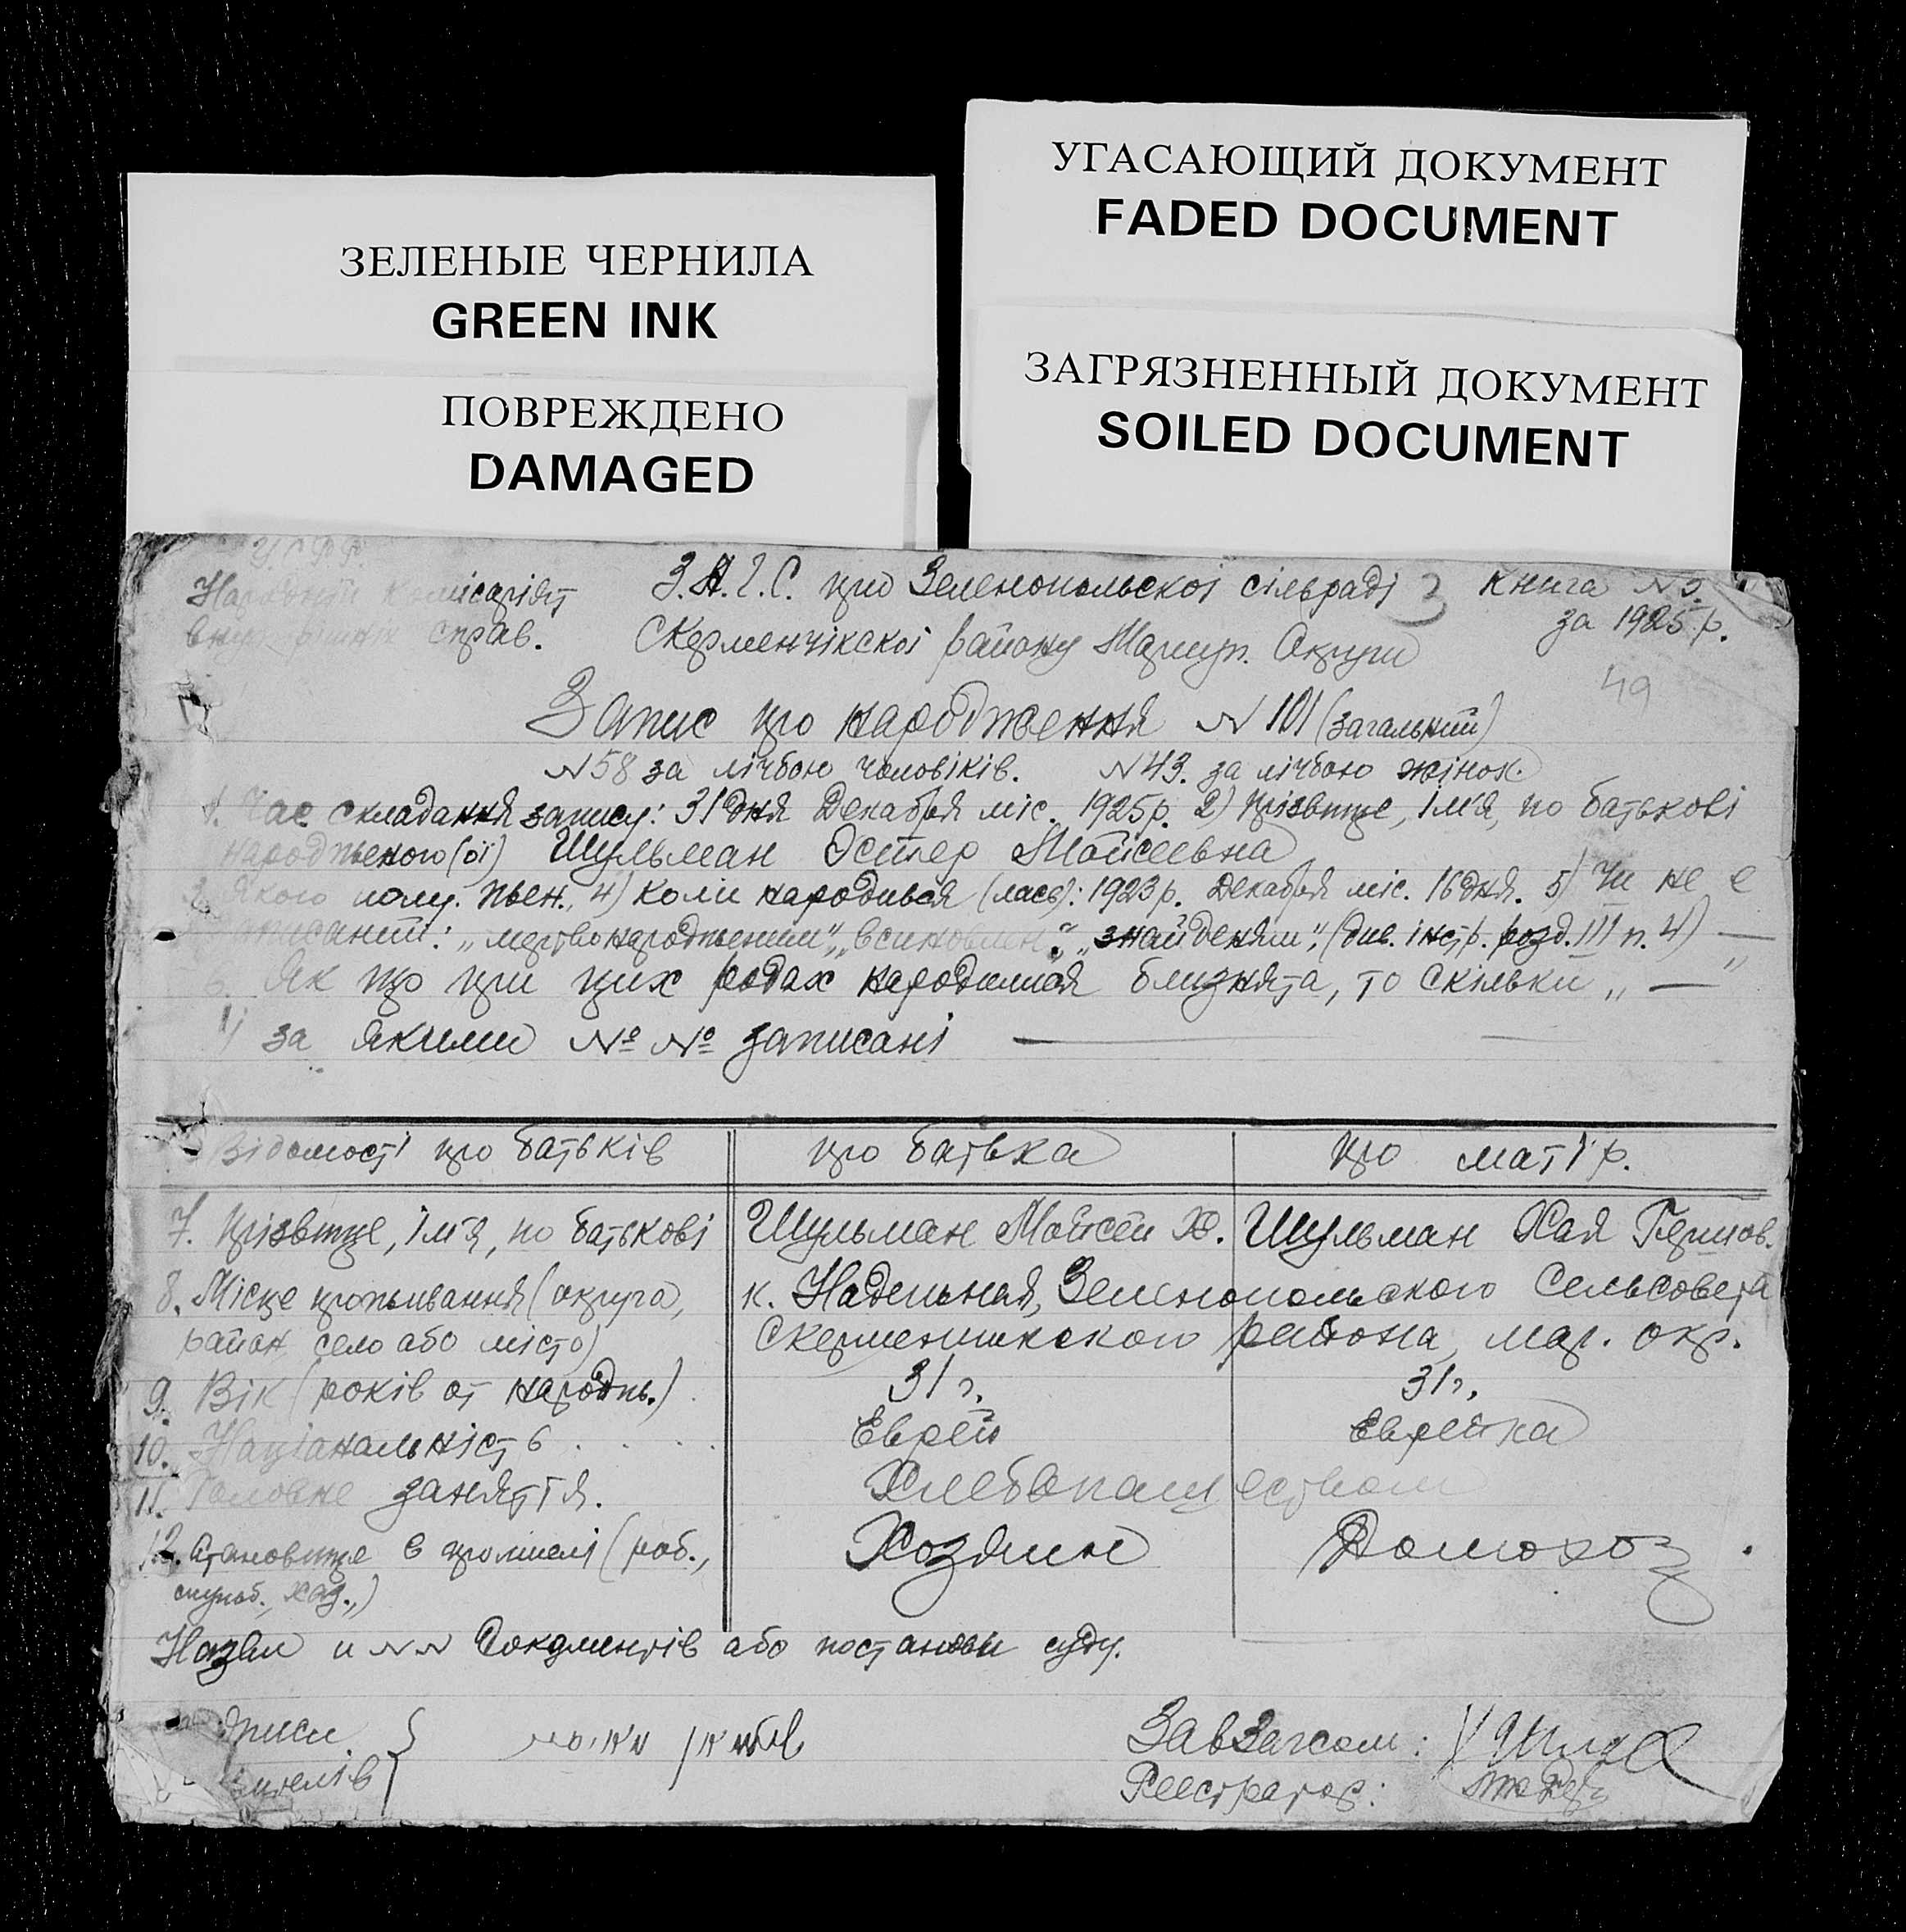 УГАСАЮЩИЙ ДОКУМЕНТ
FADED DOCUMENT
ЗЕЛЕНЫЕ ЧЕРНИЛА
GREEN INK
ЗАГРЯЗНЕННЫЙ ДОКУМЕНТ
SOILED DOCUMENT
ПОВРЕЖДЕНО
DAMAGED
У.С.Р.Р.
Народній Комісаріят З.А.Г.С. при Зеленопольскоі сільраді Книга N 3.
внутрішніх справ. Скерменчікскоі району Мариуп. Округи за 1925 р.
49
Запис про народження N 101 (загальний)
N 58 за лічбою чоловіків. N 43. за лічбою жінок.
1. Час складання запису: 31 дня Декабря міс. 1925 р. 2) Прізвище, імя, по батькові
народженого (оі) Шульман Эстер Мойсеевна
3. Якого полу. жен. 4) Коли народився (лась): 1923 р. Декабря міс. 16 дня. 5) Чи не е
записаний: „мертвонародженим", „всиновлен.", „знайденям", (див. інстр. розд. III п. 4) —
6. Як що при цих родах народилися близнята, то скільки „ — "
за якими № № записані —
Відомості про батьків про батька про матір.
7. Прізвище, імя, по батькові Шульман Мойсей Х. Шульман Хая Гершов.
8. Місце проживання (округа, к. Надельная, Зеленопольского Сельсовета
район, село або місто) Скерменчикского района, мар. окр.
9. Вік (років от народж.) 31 г. 31 г.
10. Національність . . . . Еврей Еврейка
11. Головне заняття. Хлебопашеством
12. Становище в промислі (роб., Хозяин Домохоз
служб., хаз.,)
Назви и N N Документів або постанови суду.
Завзагсом:
Реєстратор: